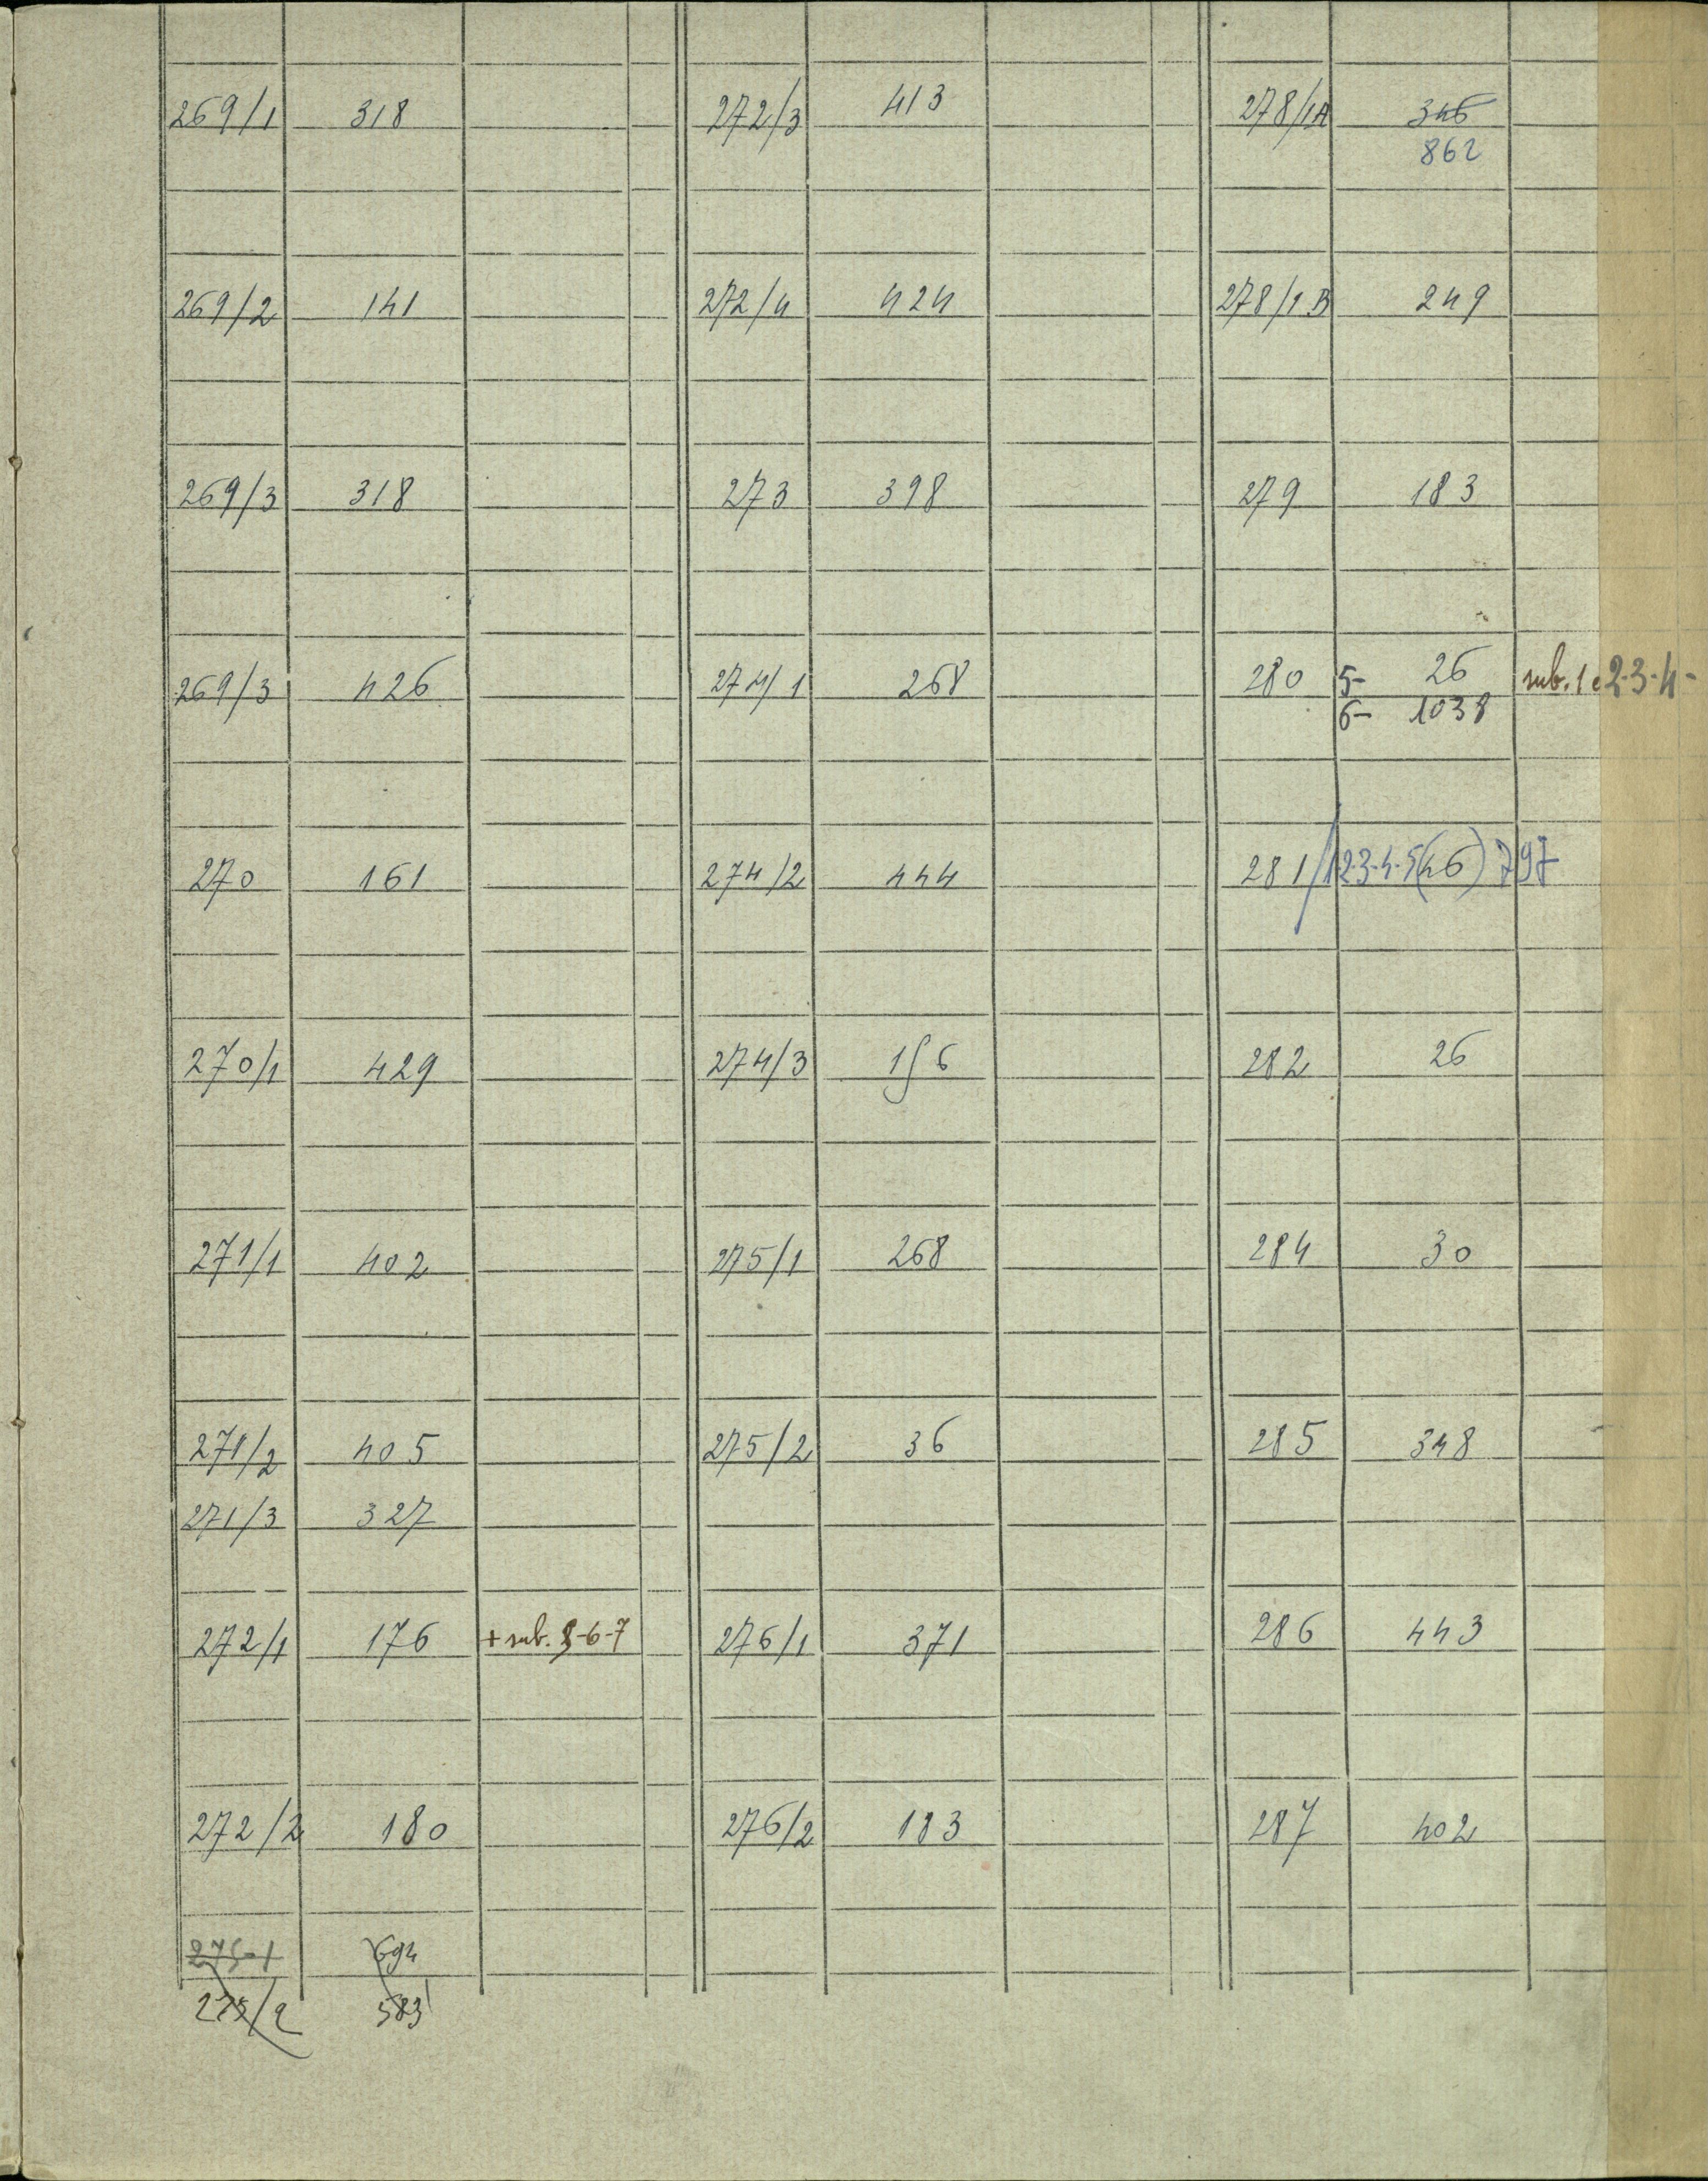 269/1 318
269/2 141
269/3 318
269/3 426
270 161
270/1 429
271/1 402
271/2 405
271/3 327
272/1 176 + sub. 5-6-7
272/2 180
275-1 694
275/2 583
272/3 413
272/4 424
273 398
274/1 268
274/2 444
274/3 156
275/1 268
275/2 36
276/1 371
276/2 183
278/1A 346
862
278/1B 249
279 183
280 5- 26 sub. 1 e 2-3-4-
6- 1038
281/1 2-3-4-5(46) 797
282 26
284 30
285 348
286 443
287 402